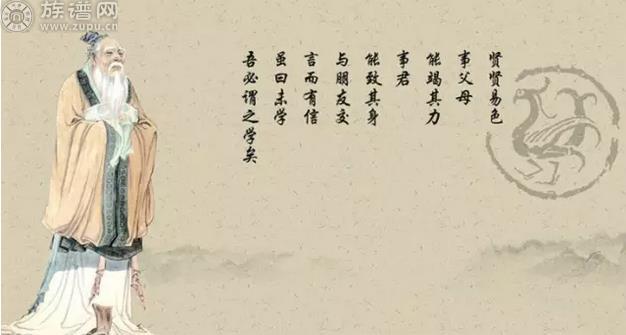 族谱网
www.zupu.cn
贤贤易色
事父母
能竭其力
事君
能致其身
与朋友交
言而有信
虽曰未学
吾必谓之学矣